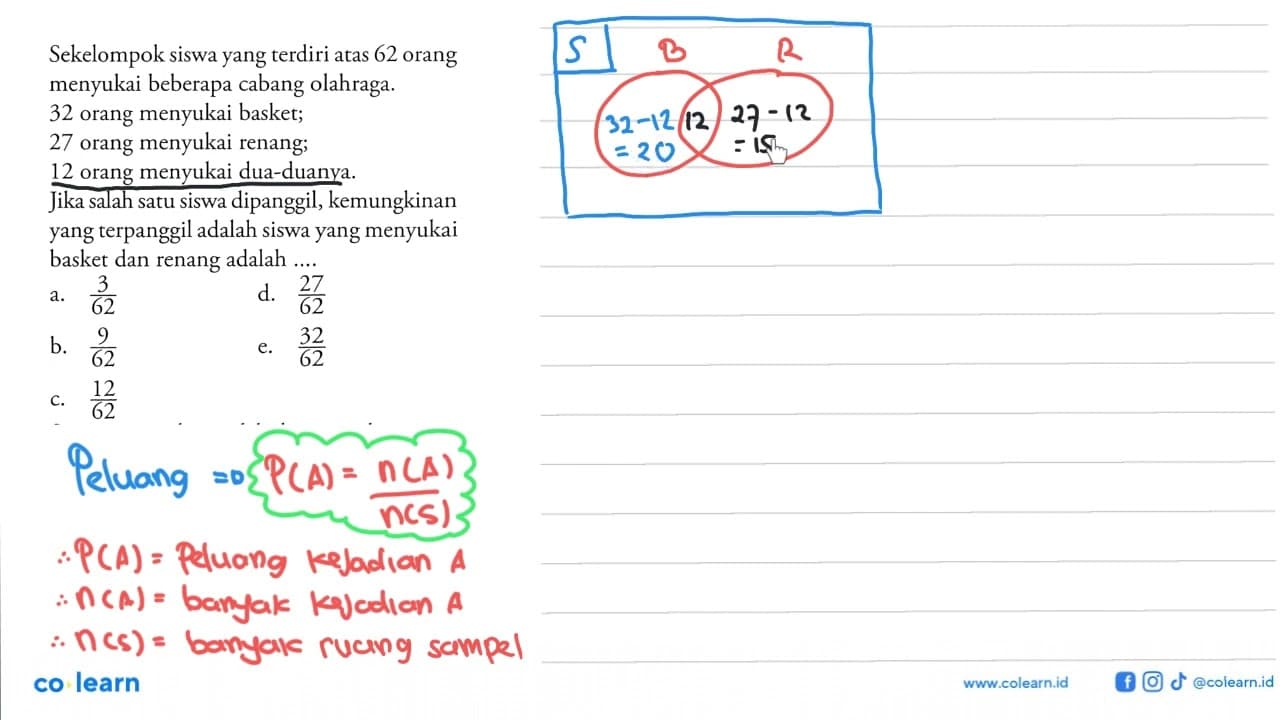 Sekelompok siswa yang terdiri atas 62 orang
menyukai beberapa cabang olahraga.
32 orang menyukai basket;
27 orang menyukai renang;
12 orang menyukai dua-duanya.
Jika salah satu siswa dipanggil, kemungkinan
yang terpanggil adalah siswa yang menyukai
basket dan renang adalah ....
a. 3/62 d. 27/62
b. 9/62 e. 32/62
c. 12/62
Peluang => P(A) = n(A)/n(S)
∴ P(A) = Peluang kejadian A
∴ n(A) = banyak kejadian A
∴ n(S) = banyak ruang sampel
S B R
32-12 12 27-12
= 20 = 15
co learn
www.colearn.id @colearn.id